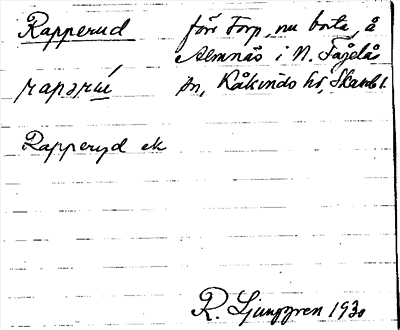 Rapperud förr Torp, nu borta, å
Almnäs i N. Fågelås
rapərú sn, Kåkinds hd, Skarab. l.
Rapperyd ek
R. Ljunggren 1930